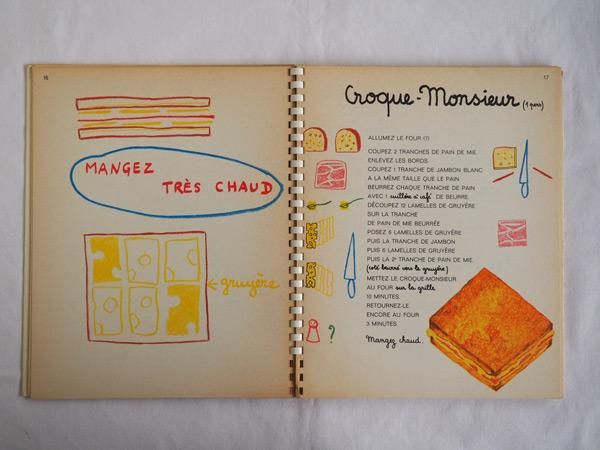 16
MANGEZ
TRÈS CHAUD
← gruyère
17
Croque-Monsieur (1 pers)
ALLUMEZ LE FOUR (7)
COUPEZ 2 TRANCHES DE PAIN DE MIE
ENLEVEZ LES BORDS.
COUPEZ 1 TRANCHE DE JAMBON BLANC
A LA MÊME TAILLE QUE LE PAIN
BEURREZ CHAQUE TRANCHE DE PAIN
AVEC 1 cuillère à café DE BEURRE
DÉCOUPEZ 12 LAMELLES DE GRUYÈRE
SUR LA TRANCHE
DE PAIN DE MIE BEURRÉE
POSEZ 6 LAMELLES DE GRUYÈRE
PUIS LA TRANCHE DE JAMBON
PUIS 6 LAMELLES DE GRUYÈRE
PUIS LA 2e TRANCHE DE PAIN DE MIE.
(côté beurré vers le gruyère)
METTEZ LE CROQUE-MONSIEUR
AU FOUR sur la grille
10 MINUTES.
RETOURNEZ-LE.
ENCORE AU FOUR
3 MINUTES.
Mangez chaud.
?